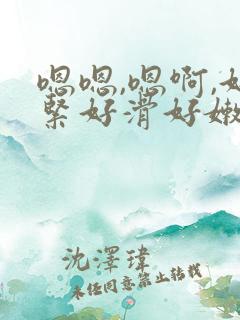 嗯嗯,嗯啊,好
紧好滑好嫩
沈澤瑋
未经同意禁止转载